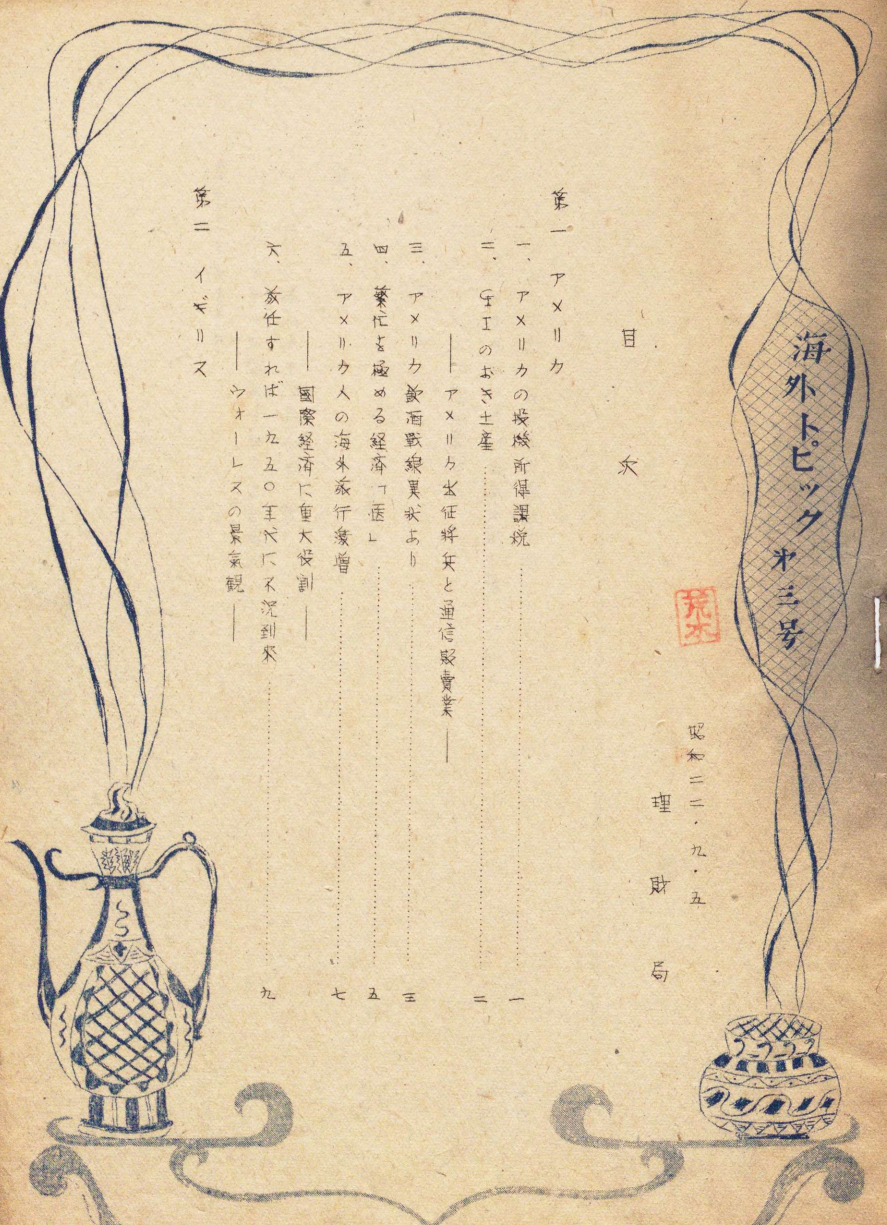 海外トピック 第三号
荒木
昭和二二・九・五
理財局
目次
第一 アメリカ
一、アメリカの投機所得課税 一
二、GIのおき土産 二
――アメリカ出征将兵と通信販賣業――
三、アメリカ飲酒戰線異状あり 三
四、繁忙を極める経済「医」 五
五、アメリカ人の海外旅行激増 七
――國際経済に重大役割――
六、放任すれば一九五〇年代に不況到來 九
――ウォーレスの景氣観――
第二 イギリス